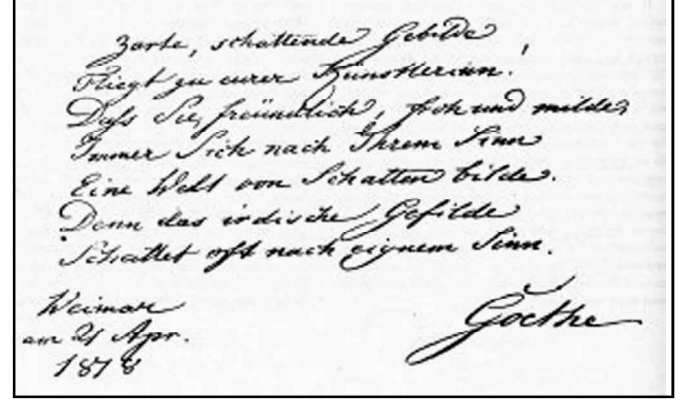 Zarte, schattende Gebilde,
Fliegt zu eurer Künstlerinn!
Dass Sie, freundlich, froh und milde,
Immer Sich nach Ihrem Sinn
Eine Welt von Schatten bilde.
Denn das irdische Gefilde
Schattet oft nach eignem Sinn.
Weimar
am 21 Apr.
1818
Goethe